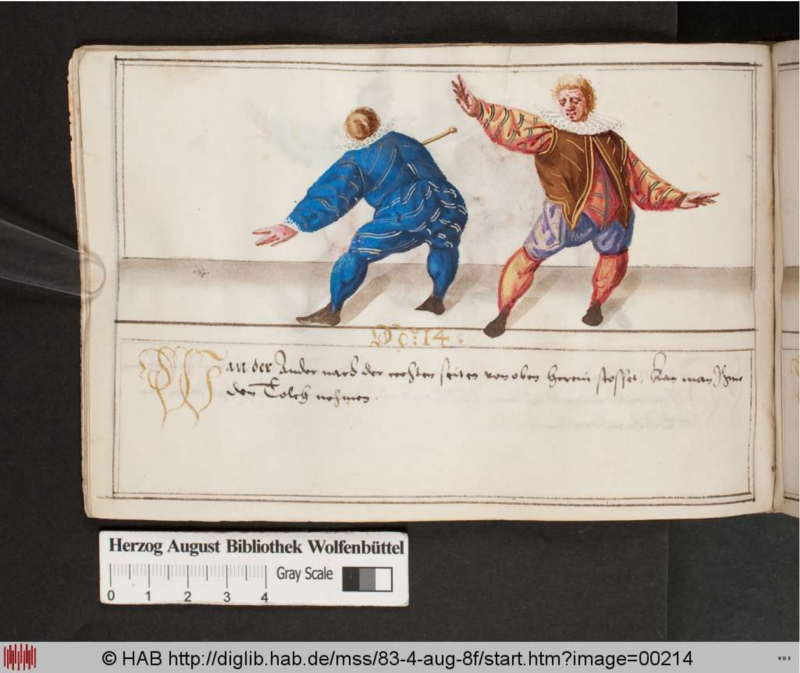 No: 14:
Wan der Ander nach der rechten seiten von oben herein stosset, kan man Ihme
den Tolch nehmen.
Herzog August Bibliothek Wolfenbüttel
Gray Scale
0 1 2 3 4
© HAB http://diglib.hab.de/mss/83-4-aug-8f/start.htm?image=00214